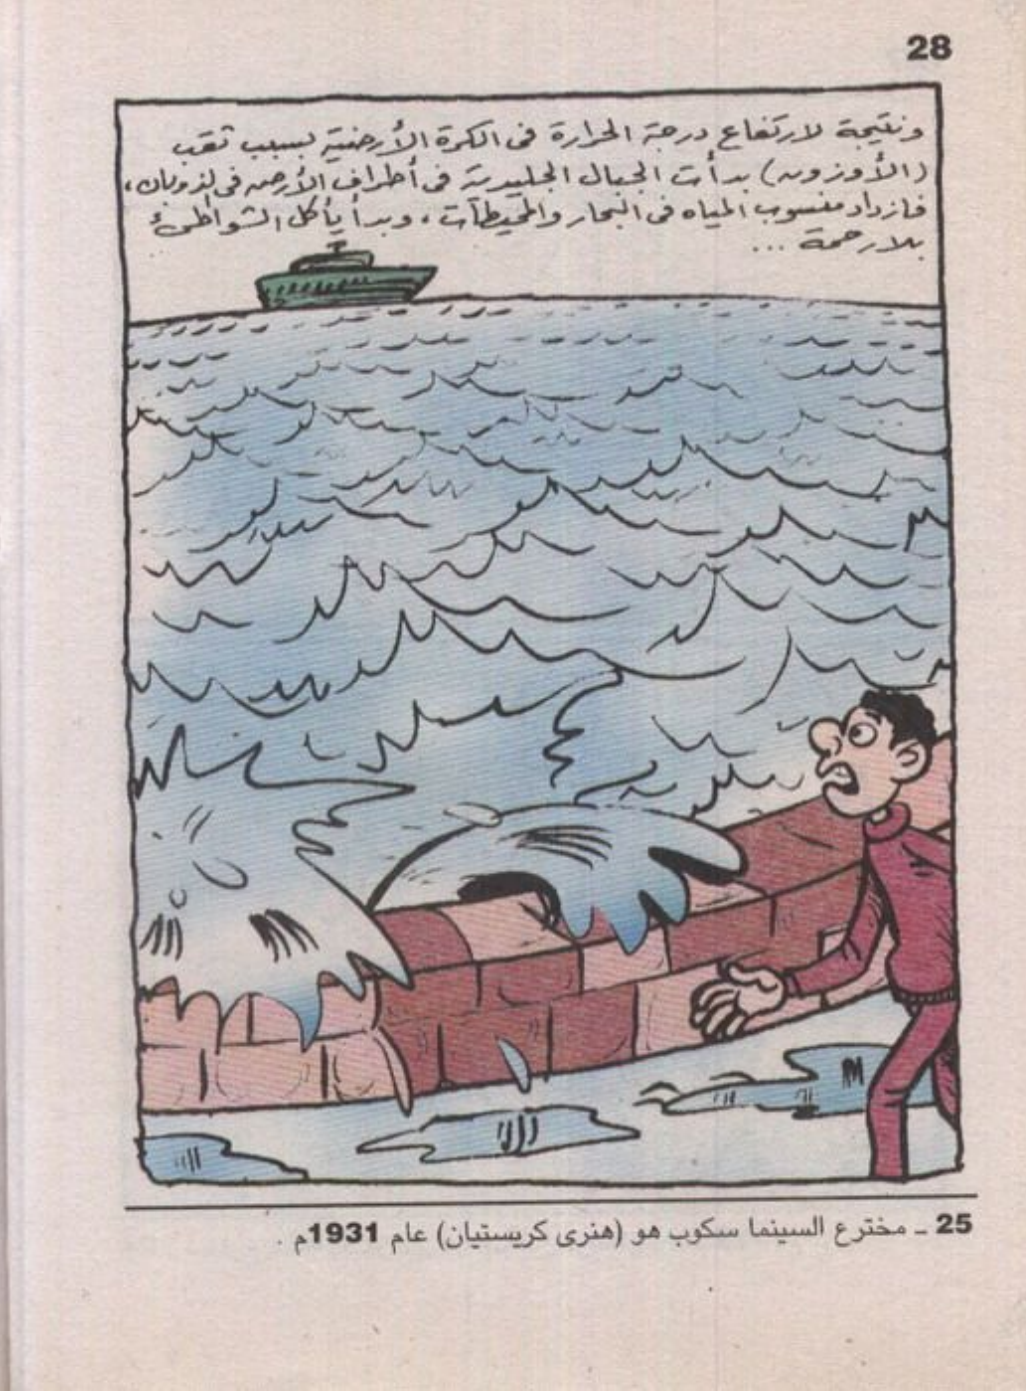 28
ونتيجة لارتفاع درجة الحرارة فى الكرة الأرضية بسبب ثقب
(الأوزون) بدأت الجبال الجليدية فى أطراف الأرض فى لذوبان،
فازداد منسوب المياه فى البحار والمحيطات، وبدأ يأكل الشواطئ
بلا رحمة ...
25 ـ مخترع السينما سكوب هو (هنرى كريستيان) عام 1931م .